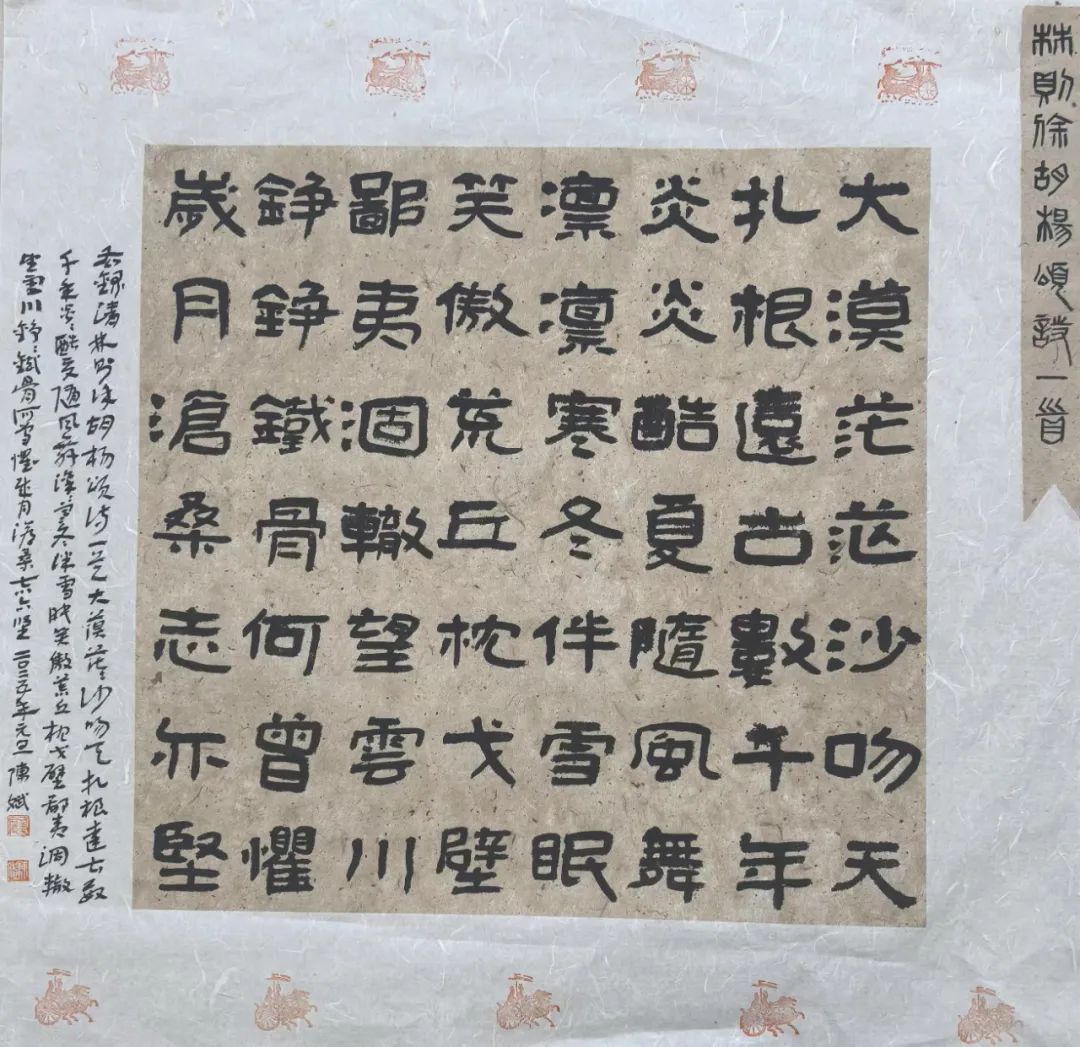 林則徐胡楊頌詩一首
大漠茫茫沙吻天
扎根遠古數千年
炎炎酷夏隨風舞
凛凛寒冬伴雪眠
笑傲荒丘枕戈壁
鄙夷涸轍望雲川
錚錚鐵骨何曾懼
歲月滄桑志亦堅
右錄清林则徐胡杨颂诗一首大漠茫〻沙吻天扎根遠古數
千年炎〻酷夏随风舞凛〻寒冬伴雪眠笑傲荒丘枕戈壁鄙夷涸辙
望雲川錚〻鐵骨何曾懼歲月滄桑志亦坚二〇二五年元旦陳斌